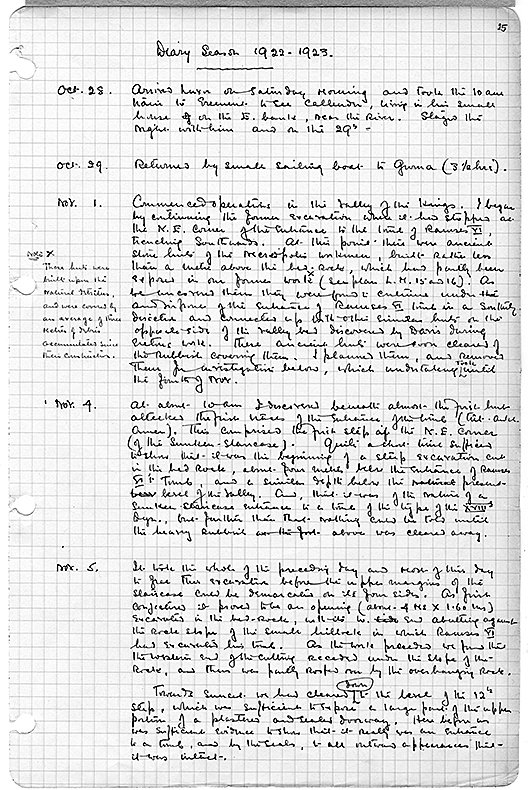 25
Diary Season 1922-1923.
Oct. 28. Arrived Luxor on Saturday morning and took the 10 am
train to Erment to see Callender, living in his small
house on the E. bank, near the River. Stayed the
night with him and on the 29th -
Oct. 29. Returned by small sailing boat to Gurna (3½ hrs).
Nov. 1. Commenced operations in the Valley of the Kings. I began
by continuing the former excavation where it had stopped at
the N.E. corner of the entrance to the tomb of Ramses VI,
trenching Southwards. At this point there were ancient
stone huts of the Necropolis workmen, built rather less
than a metre above the bed rock, which had partly been
exposed in our former work X (see plan L.M. 15 and 16). As
we uncovered them they were found to continue under the
and in front of the entrance of Ramses VI tomb in a Southerly
direction and connected up with other similar huts on the
opposite side of the valley had discovered by Davis during
work. These ancient huts were soon cleared of
the rubbish covering them. I planned them, and removed
them for investigation below, which undertaking took until
the fourth of Nov.
Note X
These huts were
built upon the
natural detritus,
and were covered by
an average of three
metres of debris
accumulated since
their construction.
Nov. 4. At about 10 am I discovered beneath almost the first hut
attacked the first traces of the entrance of the tomb (Tut. ankh.
Amen). This comprised the first step of the N.E. corner
(of the sunken-staircase). Quite a short time sufficed
to show that it was the beginning of a steep excavation cut
in the bed rock, about four metres below the entrance of Ramses
VI's tomb, and a similar depth below the natural present
level of the valley. And, that it was of the nature of a
sunken staircase entrance to a tomb of the type of the XVIIIth
Dyn., but further than that nothing could be told until
the heavy rubbish above was cleared away.
Nov. 5. It took the whole of the preceding day and most of this day
to free this excavation before the upper margins of the
staircase could be demarcated on its four sides. As first
conjectured it proved to be an opening (about 4 Ms X 1.60 Ms)
excavated in the bed-rock, with its W. end abutting against
the rock slope of the small hillock in which Ramses VI
had excavated his tomb. As the work proceeded we found that
the western end of the cutting receded under the slope of the
rock, and thus was partly roofed over by the overhanging rock.
Towards sunset we had cleared down to the level of the 12th
step, which was sufficient to expose a large part of the upper
portion of a plastered and sealed doorway. Here before us
was sufficient evidence to show that it really was an entrance
to a tomb, and by the seals, to all outward appearances that
it was intact.